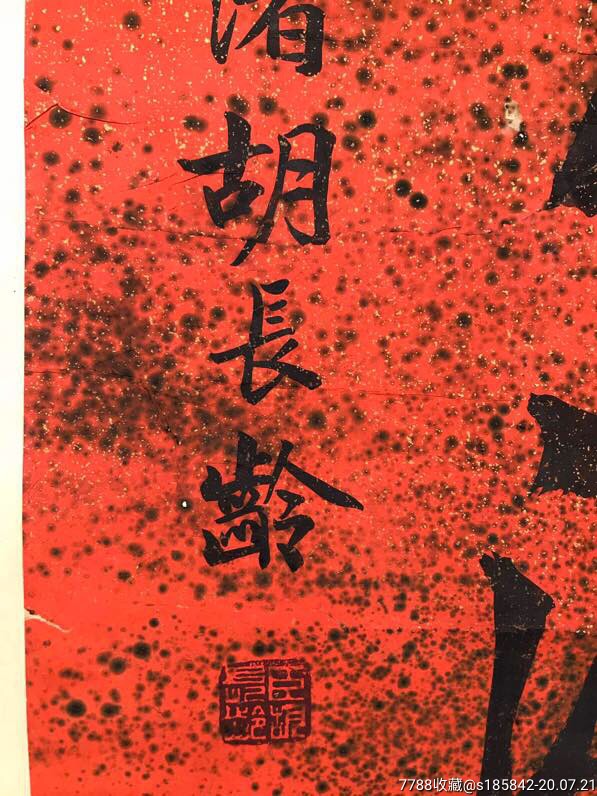 渚胡長齡
臣胡
長齡
7788收藏@s185842-20.07.21